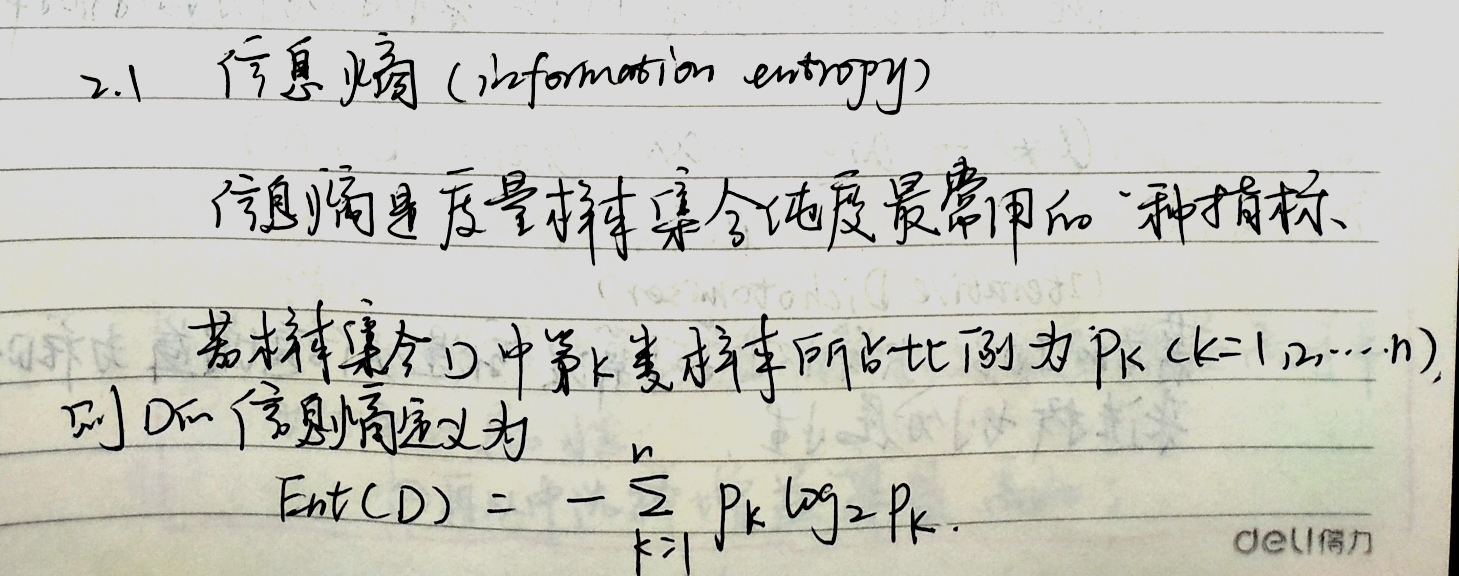 2.1 信息熵 (information entropy)
信息熵是度量样本集合纯度最常用的一种指标、
若样本集合D中第k类样本所占比例为 Pk (k=1,2,…n),
则D的信息熵定义为
Ent(D) = - ∑ⁿₖ₌₁ Pk log₂ Pk.
deli得力